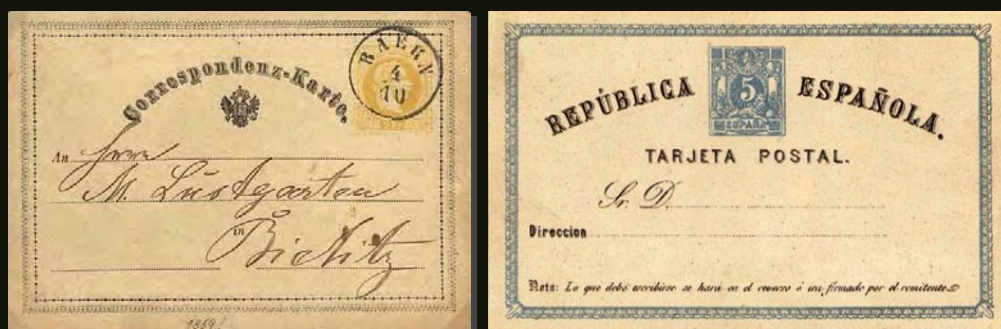 Correspondenz-Karte.
BAERN
4
10
An Herrn
M. Lustgarten
in Bielitz
1869!
REPÚBLICA ESPAÑOLA.
5
ESPAÑA
TARJETA POSTAL.
Sr. D.
Direccion
Nota: Lo que deba escribirse se hará en el reverso é irá firmado por el remitente.